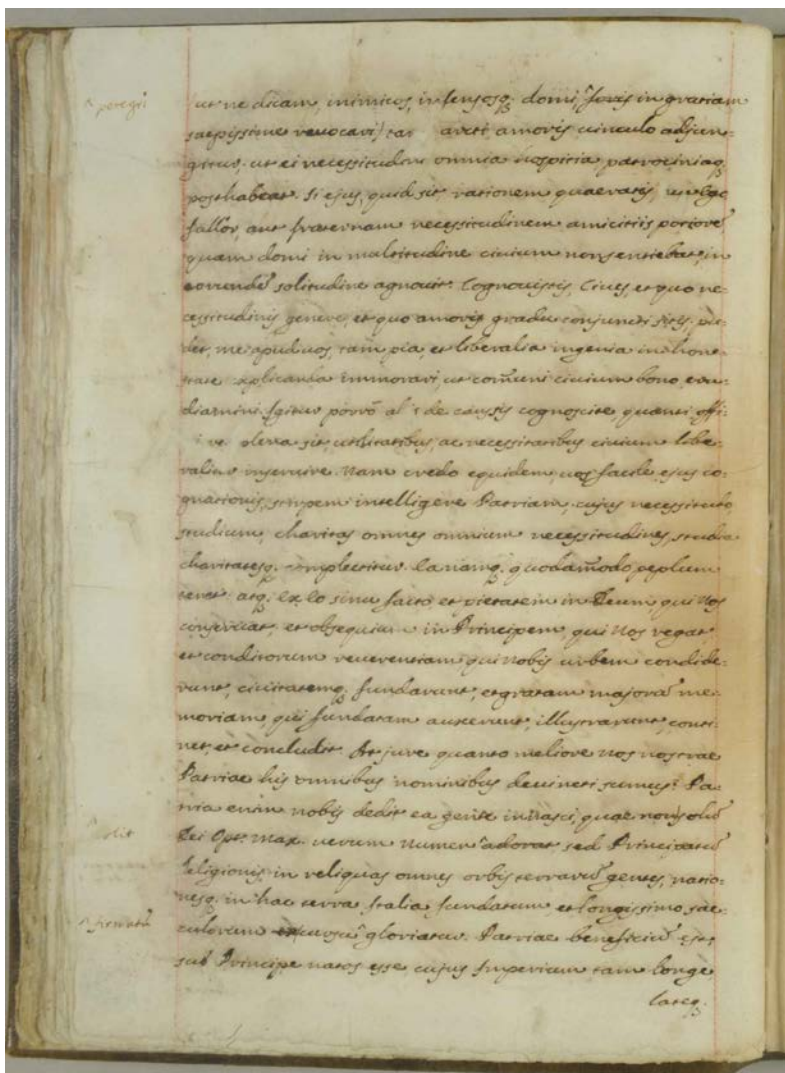 ^ peregrè
ut ne dicam, inimicos, infensosq; domi, ^foris in gratiam
saepissime revocavi) tas arcti amoris vinculo adjun-
gitur, ut ei necessitudini omnia hospitia patrociniaq;
posthabeat. Si ejus, quid sit rationem quaeratis,
fallor, aut fraternam necessitudinem amicitiis potiorē
quam domi in multitudine civium non sentiebat, in
eorundē solitudine agnovit. Cognovistis, Cives, et quo ne-
cessitudinis genere, et quo amoris gradu conjuncti sitis, pu-
det, me apud vos, tam pia et liberalia ingenia in hone-
state aplicanda immorari, ut com̄uni civium bono, eru-
diamini. Igitur porrò al s de caussis cognoscite, quanti offi-
plena sit, utilitatibus, ac necessitatibus civium libe-
ralius inservire. Nam credo equidem, vos facile ejus co-
gnationis, stirpem intelligere Patriam, cujus necessitudo,
studium, charitas omnes omnium necessitudines, studia
charitatesq; mplectitur. Ea namq; quodam̄odo peplum
tenet atq; ex lo sinu facto, et pietatem in Deum, qui Nos
conservat, et obsequium in Principem, qui Nos regat
et conditorum reverentiam qui nobis urbem condide-
runt, civitatemq; fundarunt, et gratam majorū me-
moriam, qui fundatam auxerunt, illustrarunt, conti-
net, et concludit. At jure quanto meliore nos nostrae
Patriae his omnibus nominibus devincti sumus? Pa-
tria enim nobis dedit ea gente innasci, quae non solū
Dei Opt. Max. verum Numen ^adorat, sed Principatū
Religionis in reliquas omnes orbis terrarū gentes, natio-
nesq; in hac terra Italia fundatum et longissimo sae-
culorum cursu ^gloriatur. Patriae beneficiū est,
sub Principe natos esse cujus Imperium tam longe,
lateq;